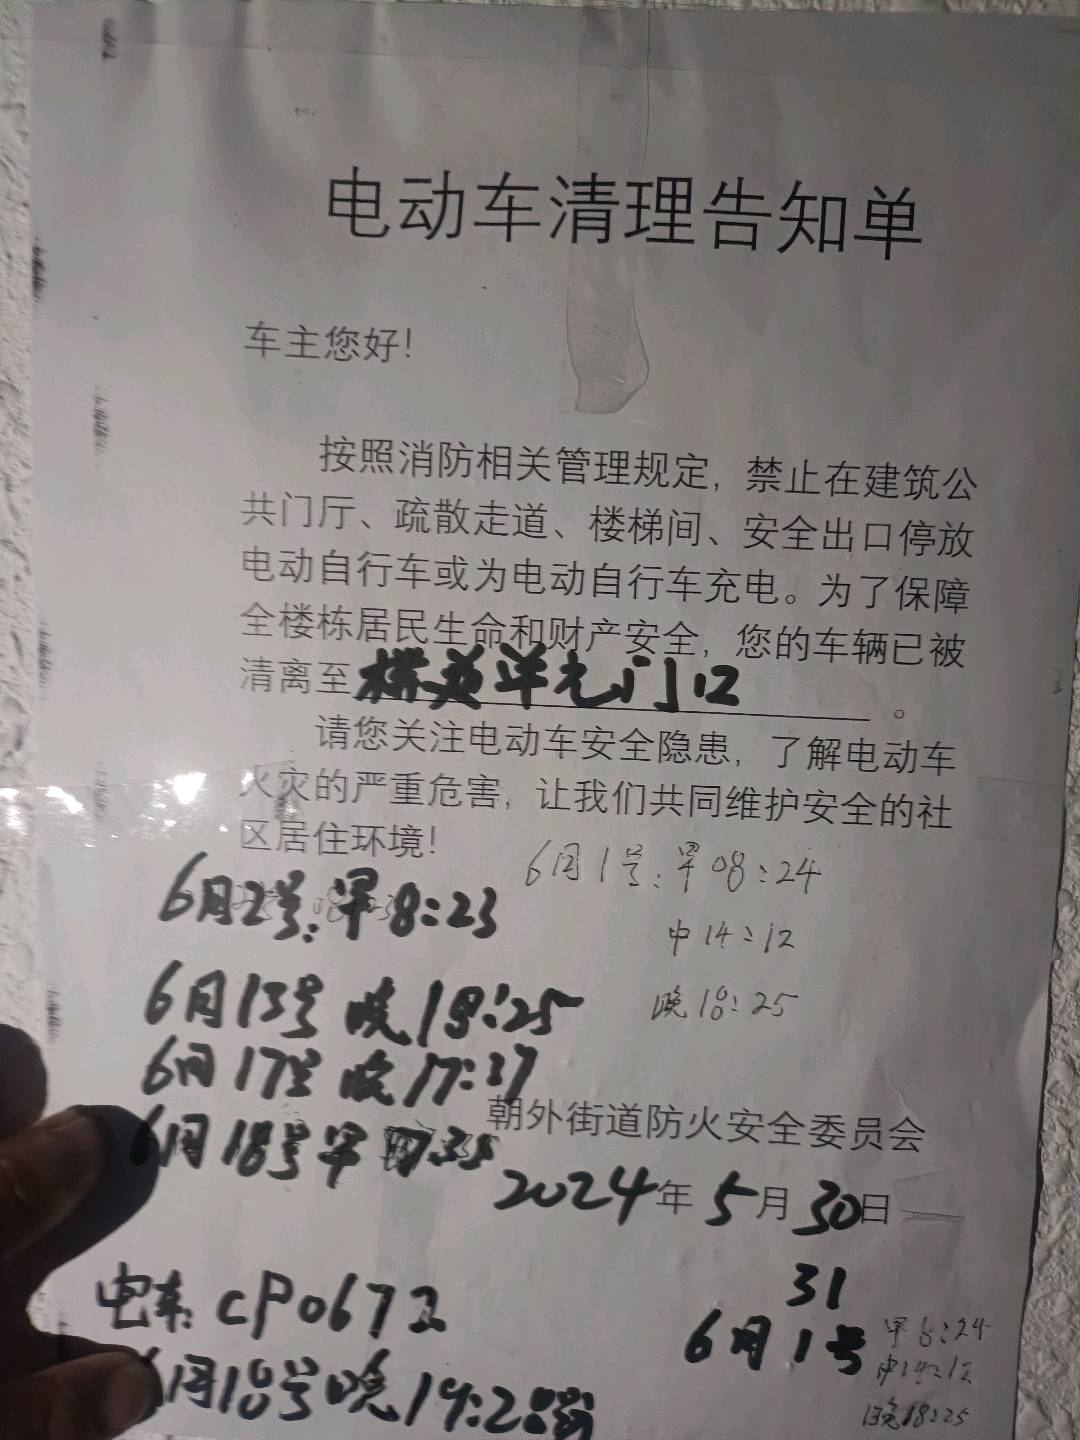 电动车清理告知单
车主您好!
按照消防相关管理规定，禁止在建筑公
共门厅、疏散走道、楼梯间、安全出口停放
电动自行车或为电动自行车充电。为了保障
全楼栋居民生命和财产安全，您的车辆已被
清离至楼道单元门口。
请您关注电动车安全隐患，了解电动车
火灾的严重危害，让我们共同维护安全的社
区居住环境!
6月1号:早08:24
中14:12
晚18:25
6月2号:早8:23
6月13号 晚18:25
6月17号 晚17:37
6月18号早
朝外街道防火安全委员会
2024年5月30日
31
6月1号
早8:24
中14:12
晚18:25
电车 CP0672
6月18号晚19:20